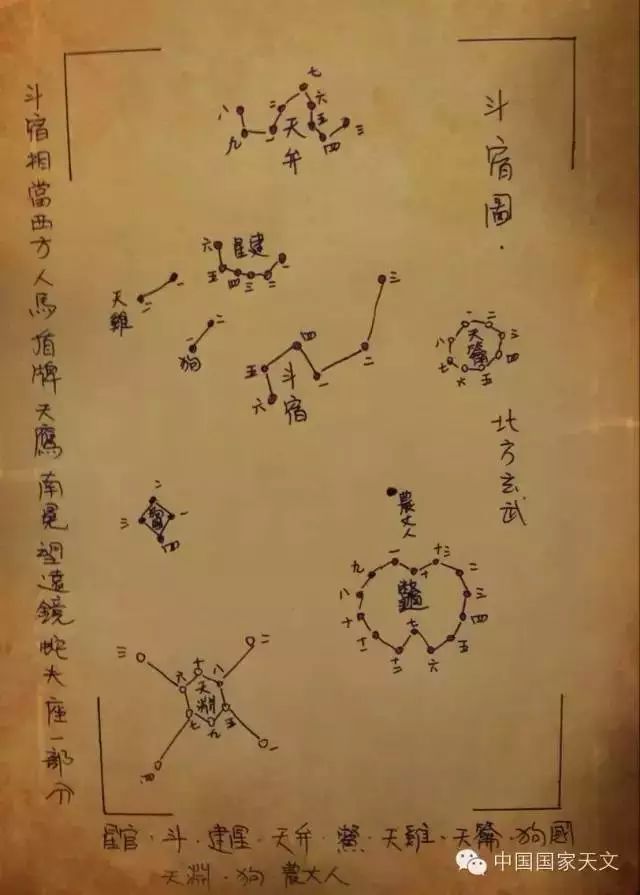 斗宿圖.
北方玄武
七
八
二
六
九
一
天弁
五
四
三
六
建星
一
五
四
三
二
天雞
二
一
狗
二
一
三
四
五
斗宿
一
二
六
一
二
八
天籥
三
四
七
六
五
二
三
一
四
農丈人
一
十三
九
十
二
八
鱉
三
十
四
七
十一
五
十二
六
三
二
十
六
八
天淵
七
五
九
四
一
斗宿相當西方人馬盾牌天鷹南冕望遠鏡蛇夫座一部分
星官·斗·建星·天弁·鱉·天雞·天籥·狗國
天淵·狗 農丈人
中国国家天文